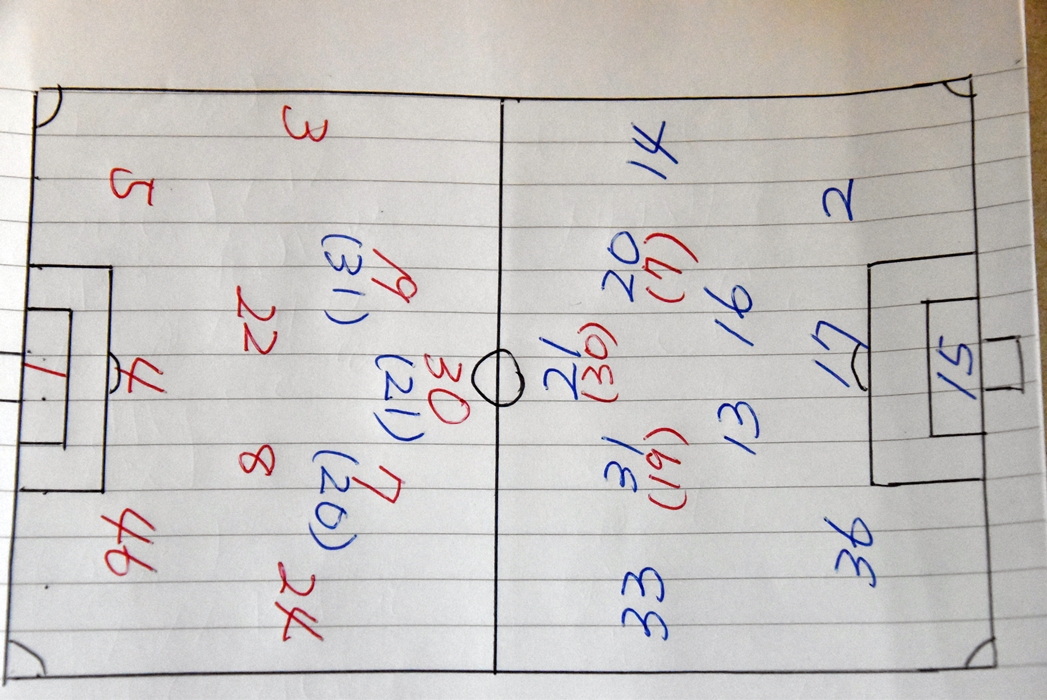 3
5
19
(31)
22
30
(21)
4
1
8
7
(20)
46
24
14
2
20
(7)
16
21
(30)
17
15
13
31
(19)
36
33